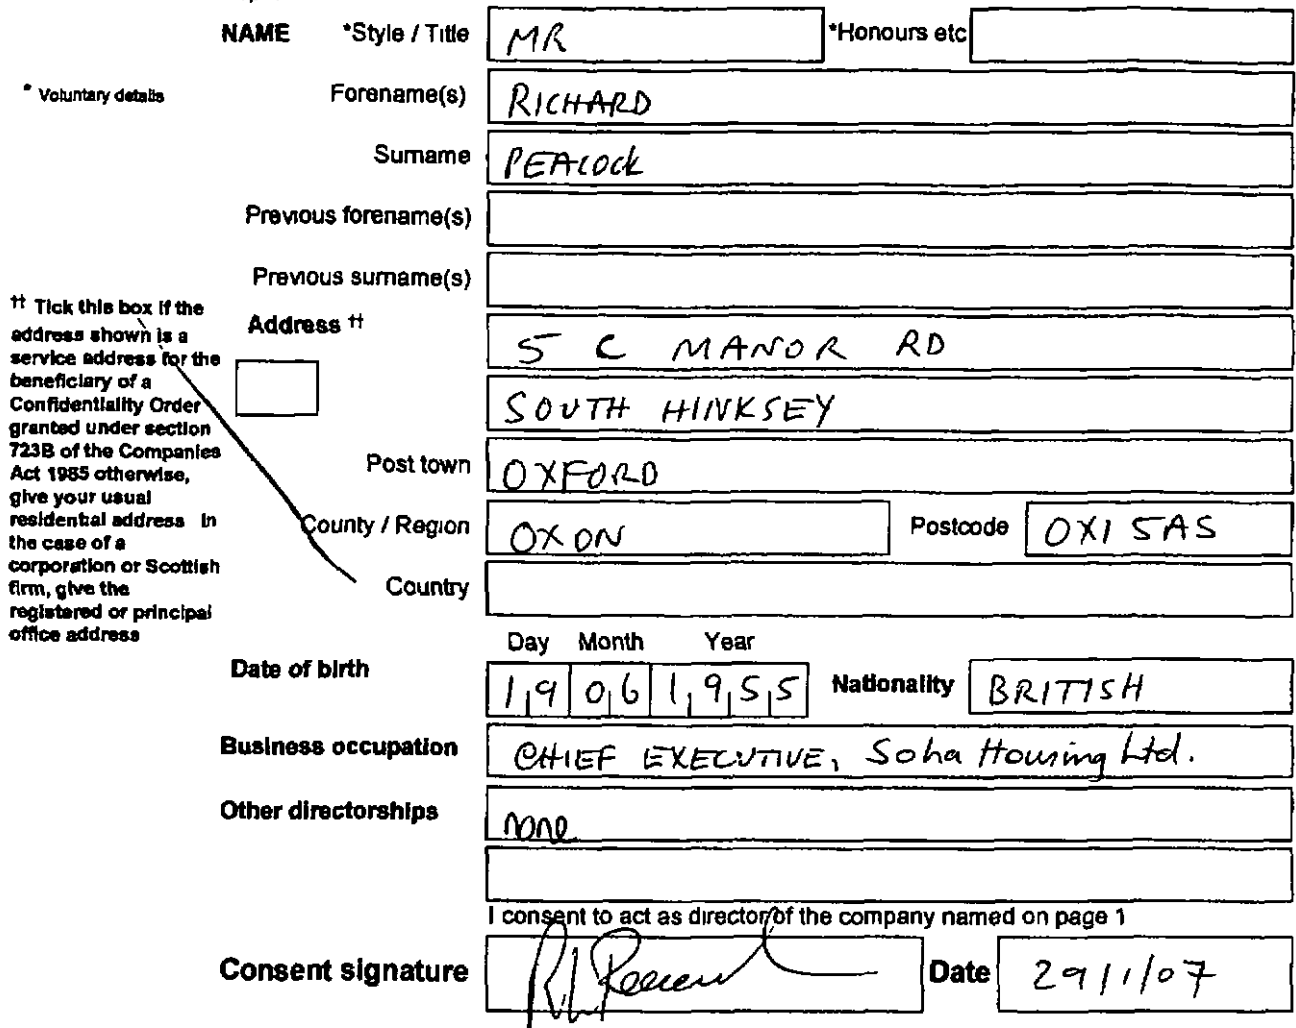 NAME *Style / Title MR *Honours etc
* Voluntary details Forename(s) RICHARD
Surname PEACOCK
Previous forename(s)
Previous surname(s)
†† Tick this box if the
address shown is a
service address for the
beneficiary of a
Confidentiality Order
granted under section
723B of the Companies
Act 1985 otherwise,
give your usual
residential address In
the case of a
corporation or Scottish
firm, give the
registered or principal
office address
Address †† 5 C MANOR RD
SOUTH HINKSEY
Post town OXFORD
County / Region OXON Postcode OX1 5AS
Country
Day Month Year
Date of birth 19 06 1955 Nationality BRITISH
Business occupation CHIEF EXECUTIVE, Soha Housing Ltd.
Other directorships none
I consent to act as director of the company named on page 1
Consent signature Date 29/1/07